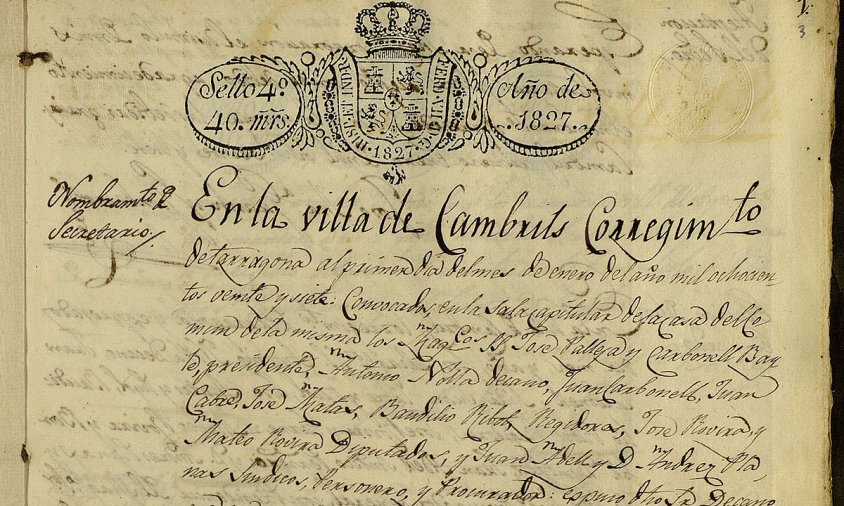 Sello 4º
40. mrs.
HISP. ET IND. R.
FERD. VII. D. G.
1827.
Año de
1827.
1.
3
Nombramto. de
Secretario.
En la villa de Cambrils Corregimto
de tarragona al primer dia del mes de enero del año mil ochocien-
tos veinte y siete: Convocados, en la sala capitular de la casa del Co-
mun de la misma los Magcos SS. Jose Pallejá y Carbonell Bay-
le, presidente, Antonio Nolla decano, Juan Carbonell, Juan
Cabré, Jose Matas, Baudilio Ribot, Regidores, Jose Rovira, y
Mateo Rovira Diputados, y Juan Adell y D. Andrez Pla-
nas Sindicos, Personero, y Procurador: expuso dho Sr. Decano